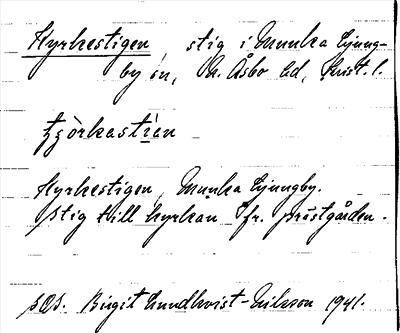 Kyrkestigen, stig i Munka Ljung-
by sn, N. Åsbo hd, Krist. l.
Kyrkestigen, Munka Ljungby.
Stig till kyrkan fr. prästgården.
Birgit Lundkvist-Nilsson 1941.